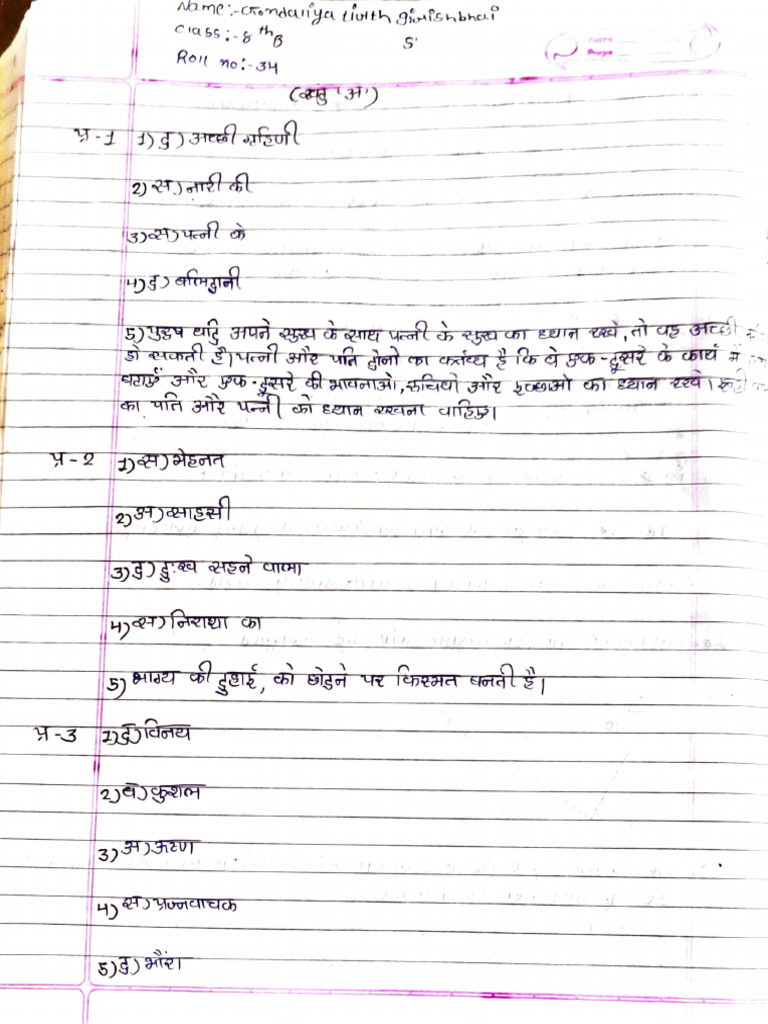 Name:- Gondaliya Tirth girishbhai
Class:- 8 th B
Roll no:- 34
(खण्ड 'अ')
प्र-1 1) द) अच्छी ग्रहिणी
2) स) नारी की
3) स) पत्नी के
4) द) बलिदानी
5) पुरुष यदि अपने सुख के साथ पत्नी के सुख का ध्यान रखे, तो वह अच्छी
हो सकती है। पत्नी और पति दोनो का कर्तव्य है कि वे एक-दूसरे के कार्य में
बटाएँ और एक-दूसरे की भावनाओ, रुचियो और इच्छाओ का ध्यान रखे।
का पति और पत्नी को ध्यान रखना चाहिए।
प्र-2 1) स) मेहनत
2) अ) साहसी
3) द) दुःख सहने वाला
4) स) निराशा का
5) भाग्य की दुहाई, को छोडने पर किस्मत बनती है।
प्र-3 1) द) विनय
2) ब) कुशल
3) अ) ऋण
4) स) प्रश्नवाचक
5) द) भौंरा